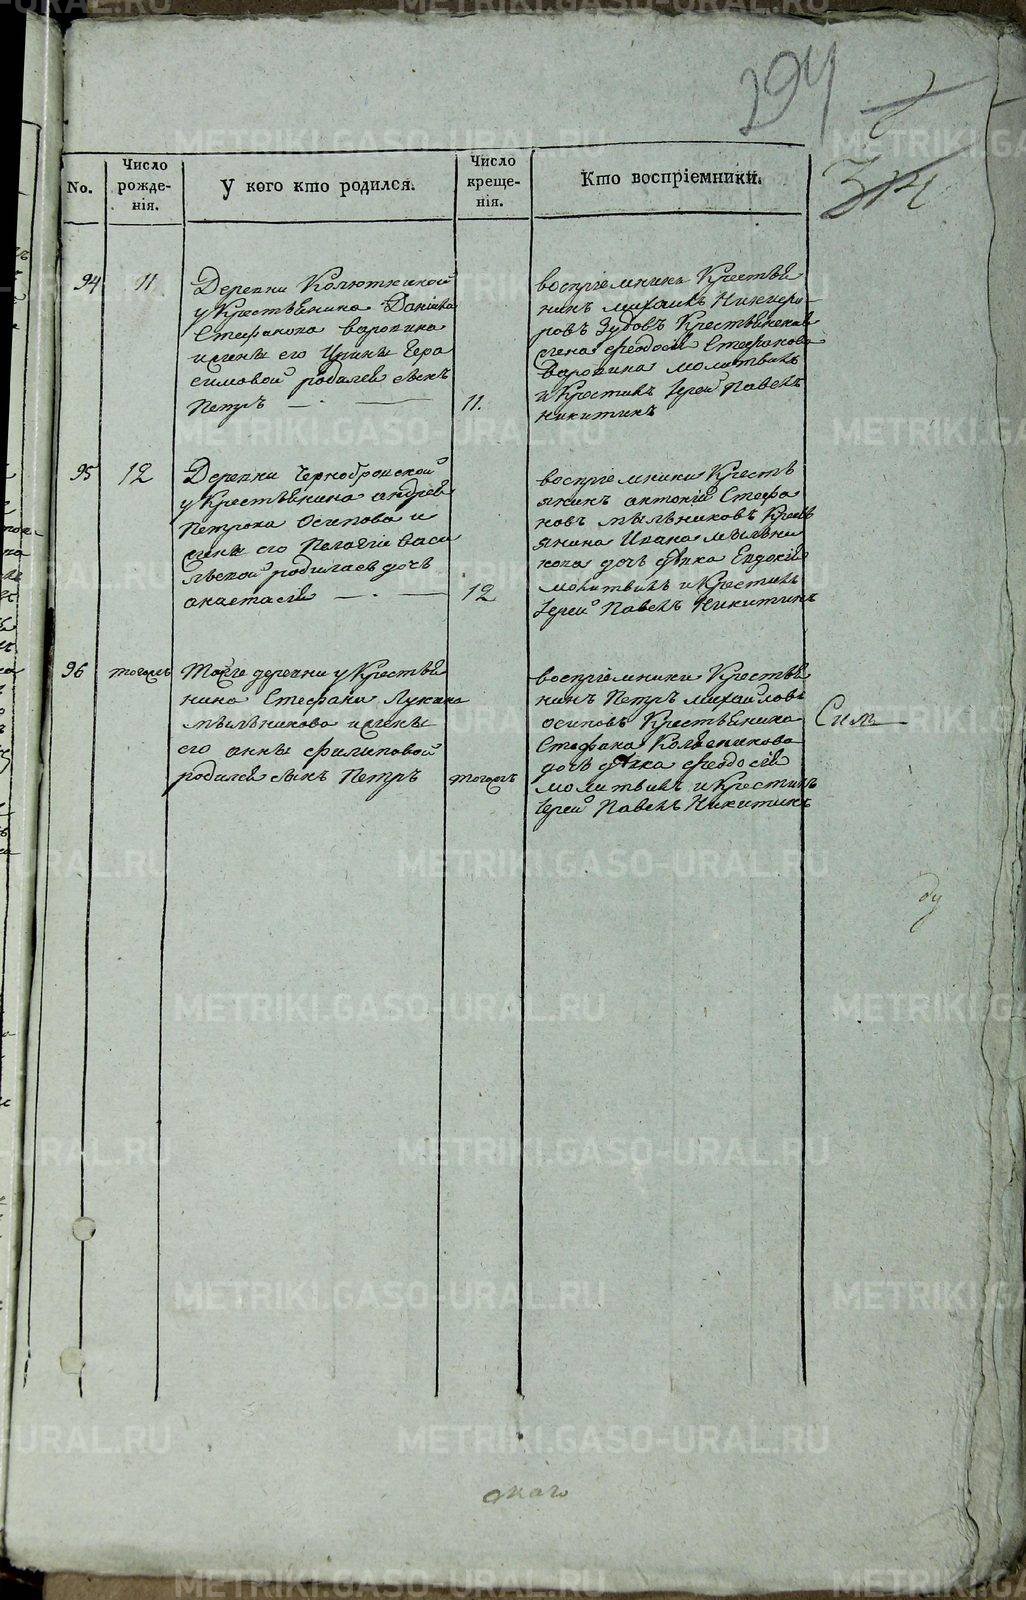 294
314
No.
Число рожде-нія.
У кого кто родился.
Число креще-нія.
Кто воспріемники.
94
11
Деревни Колюткиной
у Крестьянина Данила
Стефанова Варопина
и жены его Ирины Гера
симовой родился сынъ
Петръ
11.
воспріемники Крестья
нинъ Михаилъ Никифо-
ровъ Зубовъ Крестьянская
жена Феодосья Стефанова
Варопина молитвилъ
и Крестилъ Іерей Павелъ
Никитинъ
95
12
Деревни Чернобровской
у Крестьянина Андрея
Петрова Осипова и
жены его Пелагіи Васи
льевой родилась дочь
Анастасія
12
воспріемники Кресть
янинъ Антоній Стефа
новъ Мыльниковъ Кресть
янина Ивана Мыльни
кова дочь дѣвка Евдокія
молитвилъ и Крестилъ
Іерей Павелъ Никитинъ
96
тогожъ
Тойже деревни у Крестья
нина Стефана Лукина
Мыльникова и жены
его Анны Филиповой
родился сынъ Петръ
тогожъ
воспріемники Крестья
нинъ Петръ Михайловъ
Осиповъ Крестьянина
Стефана Колясникова
дочь дѣвка Феодосія
молитвилъ и Крестилъ
Іерей Павелъ Никитинъ
METRIKI.GASO-URAL.RU